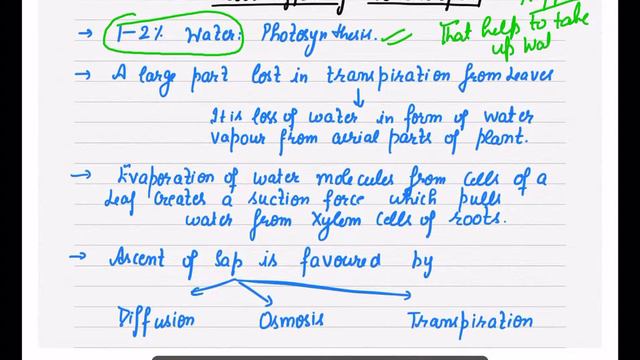 → 1-2% Water: Photosynthesis.
That helps to take
up Wat
→ A large part lost in transpiration from leaves
It is loss of water in form of water
vapour from aerial parts of plant.
→ Evaporation of water molecules from cells of a
leaf creates a suction force which pulls
water from xylem cells of roots.
→ Ascent of Sap is favoured by
Diffusion Osmosis Transpiration